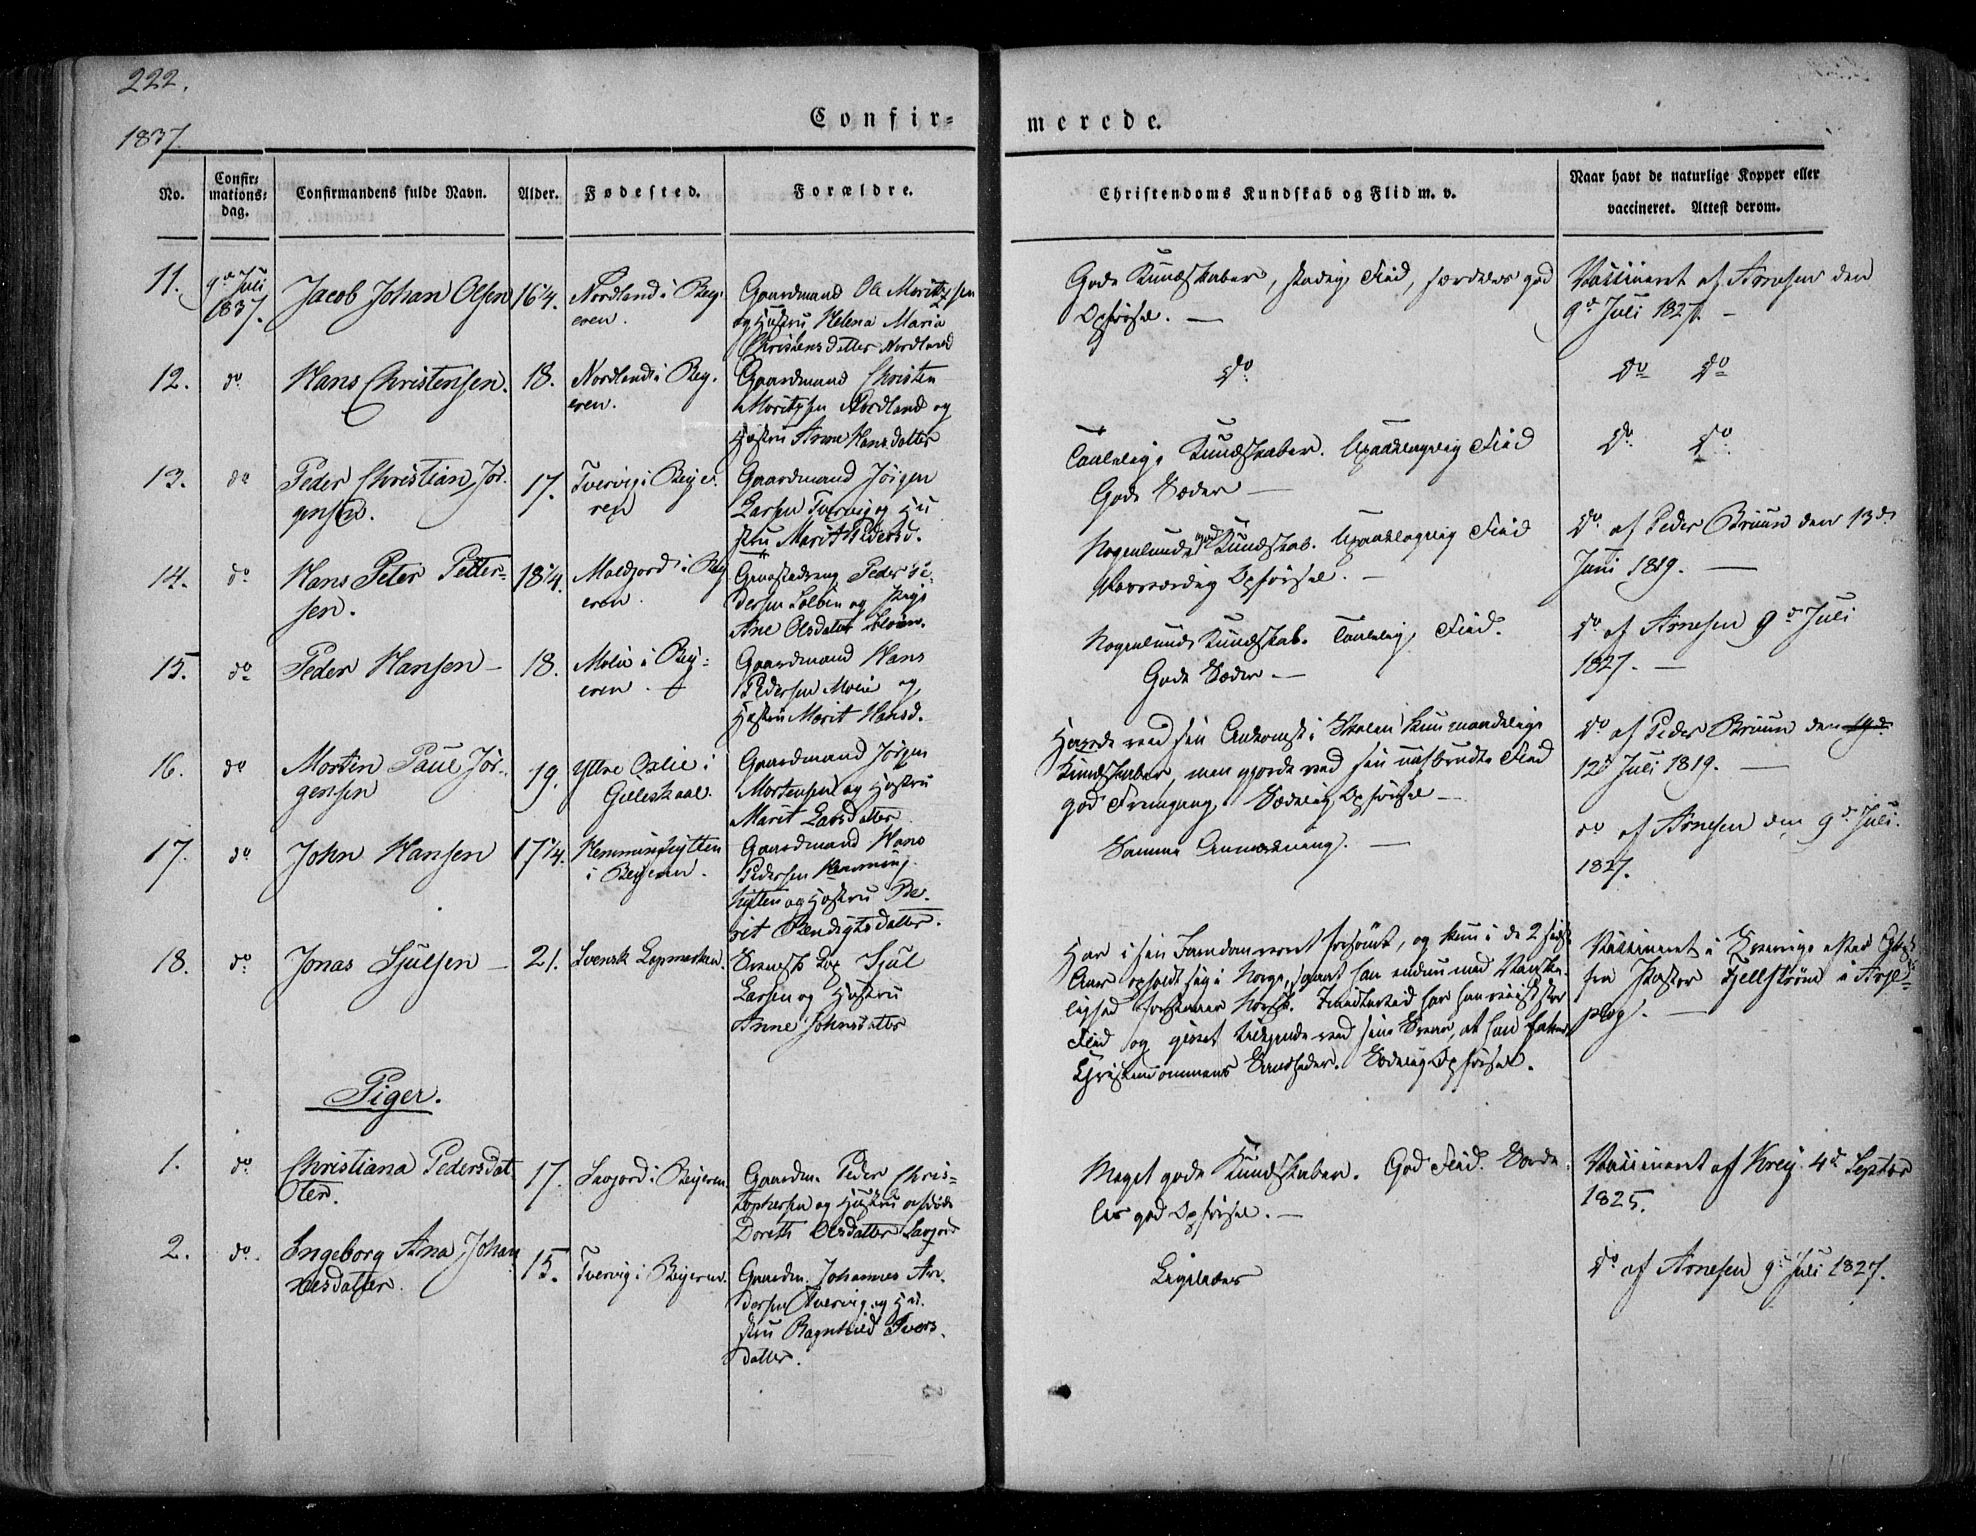 222.
1837
Confir=
merede.
No.
Confir=
mations=
dag.
Confirmandens fulde Navn.
Alder.
Fødested.
Forældre.
Christendoms Kundskab og Flid m. v.
Naar havt de naturlige Kopper eller
vaccineret. Attest derom.
11.
9de Juli
1837.
Jacob Johan Olsen
16 1/4.
Nordland i Bej-
eren.
Gaardmand Ole Moritzsen
og Hustru Helena Maria
Christensdatter Nordland
Gode Kundskaber, stadig Flid, særdeles god
Opførsel. —
Vaccineret af Arnesen den
9de Juli 1827. —
12.
do
Hans Christensen.
18.
Nordland i Bej.
eren.
Gaardmand Christen
Moritzsen Nordland og
Hustru Anne Hansdatter
Do
Do Do
13.
do
Peder Christian Jør-
gensen.
17.
Tvervig i Beje-
ren
Gaardmand Jörgen
Larsen Tvervig og Hu
stru Marit Pedersd.
Taalelige Kundskaber. Upaaklagelig Flid
Gode Sæder —
Do Do
14.
do
Hans Peter Petter=
sen.
18 1/4.
Moldjord i Bej
eren.
Peder Pe-
dersen Solbøen og Pige
Ane Olsdatter
Nogenlunde god Kundskab. Upaaklagelig Flid
Opførsel. —
Do af Peder Bruun den 13de
Juni 1819. —
15.
do
Peder Hansen —
18.
Moen i Bej=
eren.
Gaardmand Hans
Pedersen Moen og
Hustru Marit Hansd.
Nogenlunde Kundskab. Taalelig Flid.
Gode Sæder. —
Do af Arnesen 9de Juli
1827. —
16.
do
Morten Paul Jör-
gensen
19.
Yttre Oxlie i
Gilleskaal.
Gaardmand Jörgen
Mortensen og Hustru
Marit Larsdatter
Havde ved sin Ankomst i Skolen kun maadelige
Kundskaber, men gjorde ved sin uafbrudte Flid
god Fremgang. Sædelig Opførsel —
Do af Peder Bruun den
12te Juli 1819. —
17.
do
John Hansen
17 1/4.
Hemminghytten
i Bejeren.
Gaardmand Hans
Pedersen Hemming-
hytten og Hustru Be-
rit Bendigtsdatter.
Samme Anmærkning. —
do af Arnesen den 9de Juli
1827.
18.
do
Jonas Sjulsen —
21.
Svensk Lapmarken.
Svensk Lap Sjul
Larsen og Hustru
Anne Johnsdatter
Har i sin Barndom været forsømt, og kun i de 2 sidste
Aar opholdt sig i Norge, saa at han endnu med Vanske-
lighed forstaaer Norsk. Imidlertid har han viist stor
Flid og givet tilkjende ved sine Svar, at han fatter
Christendommens Sandheder. Sædelig Opførsel.
Vaccineret i Sverrige efter
fra Pastor Fjellström i Arje=
plog. —
Piger.
1.
do
Christiana Pedersdat
ter.
17.
Savjord i Bejeren
Gaardm. Peder Chris=
tophersen og Hustru afdöde
Doreth Olsdatter Savjord
Meget gode Kundskaber. God Flid. Særde-
les god Opførsel. —
Vaccineret af Krey 4de Septbr
1825.
2.
do.
Ingeborg Ana Johan
nesdatter.
15.
Tvervig i Bejeren.
Gaardm. Johannes An-
dersen Tvervig og Hu-
stru Ragnhild Ivers-
datter.
Ligeledes
Do af Arnesen 9de Juli 1827.